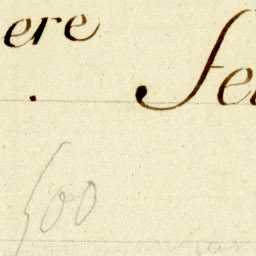 ere
fe
500